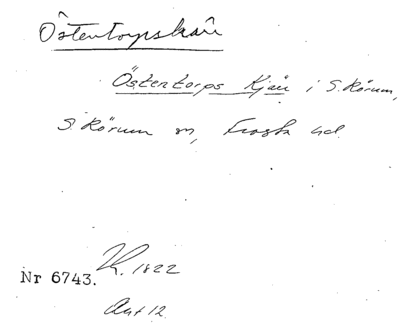 Östentorpskär
Östentorps Kjär i S. Rörum,
S. Rörum sn, Frosta hd.
Nr 6743. K. 1822
Ant 12